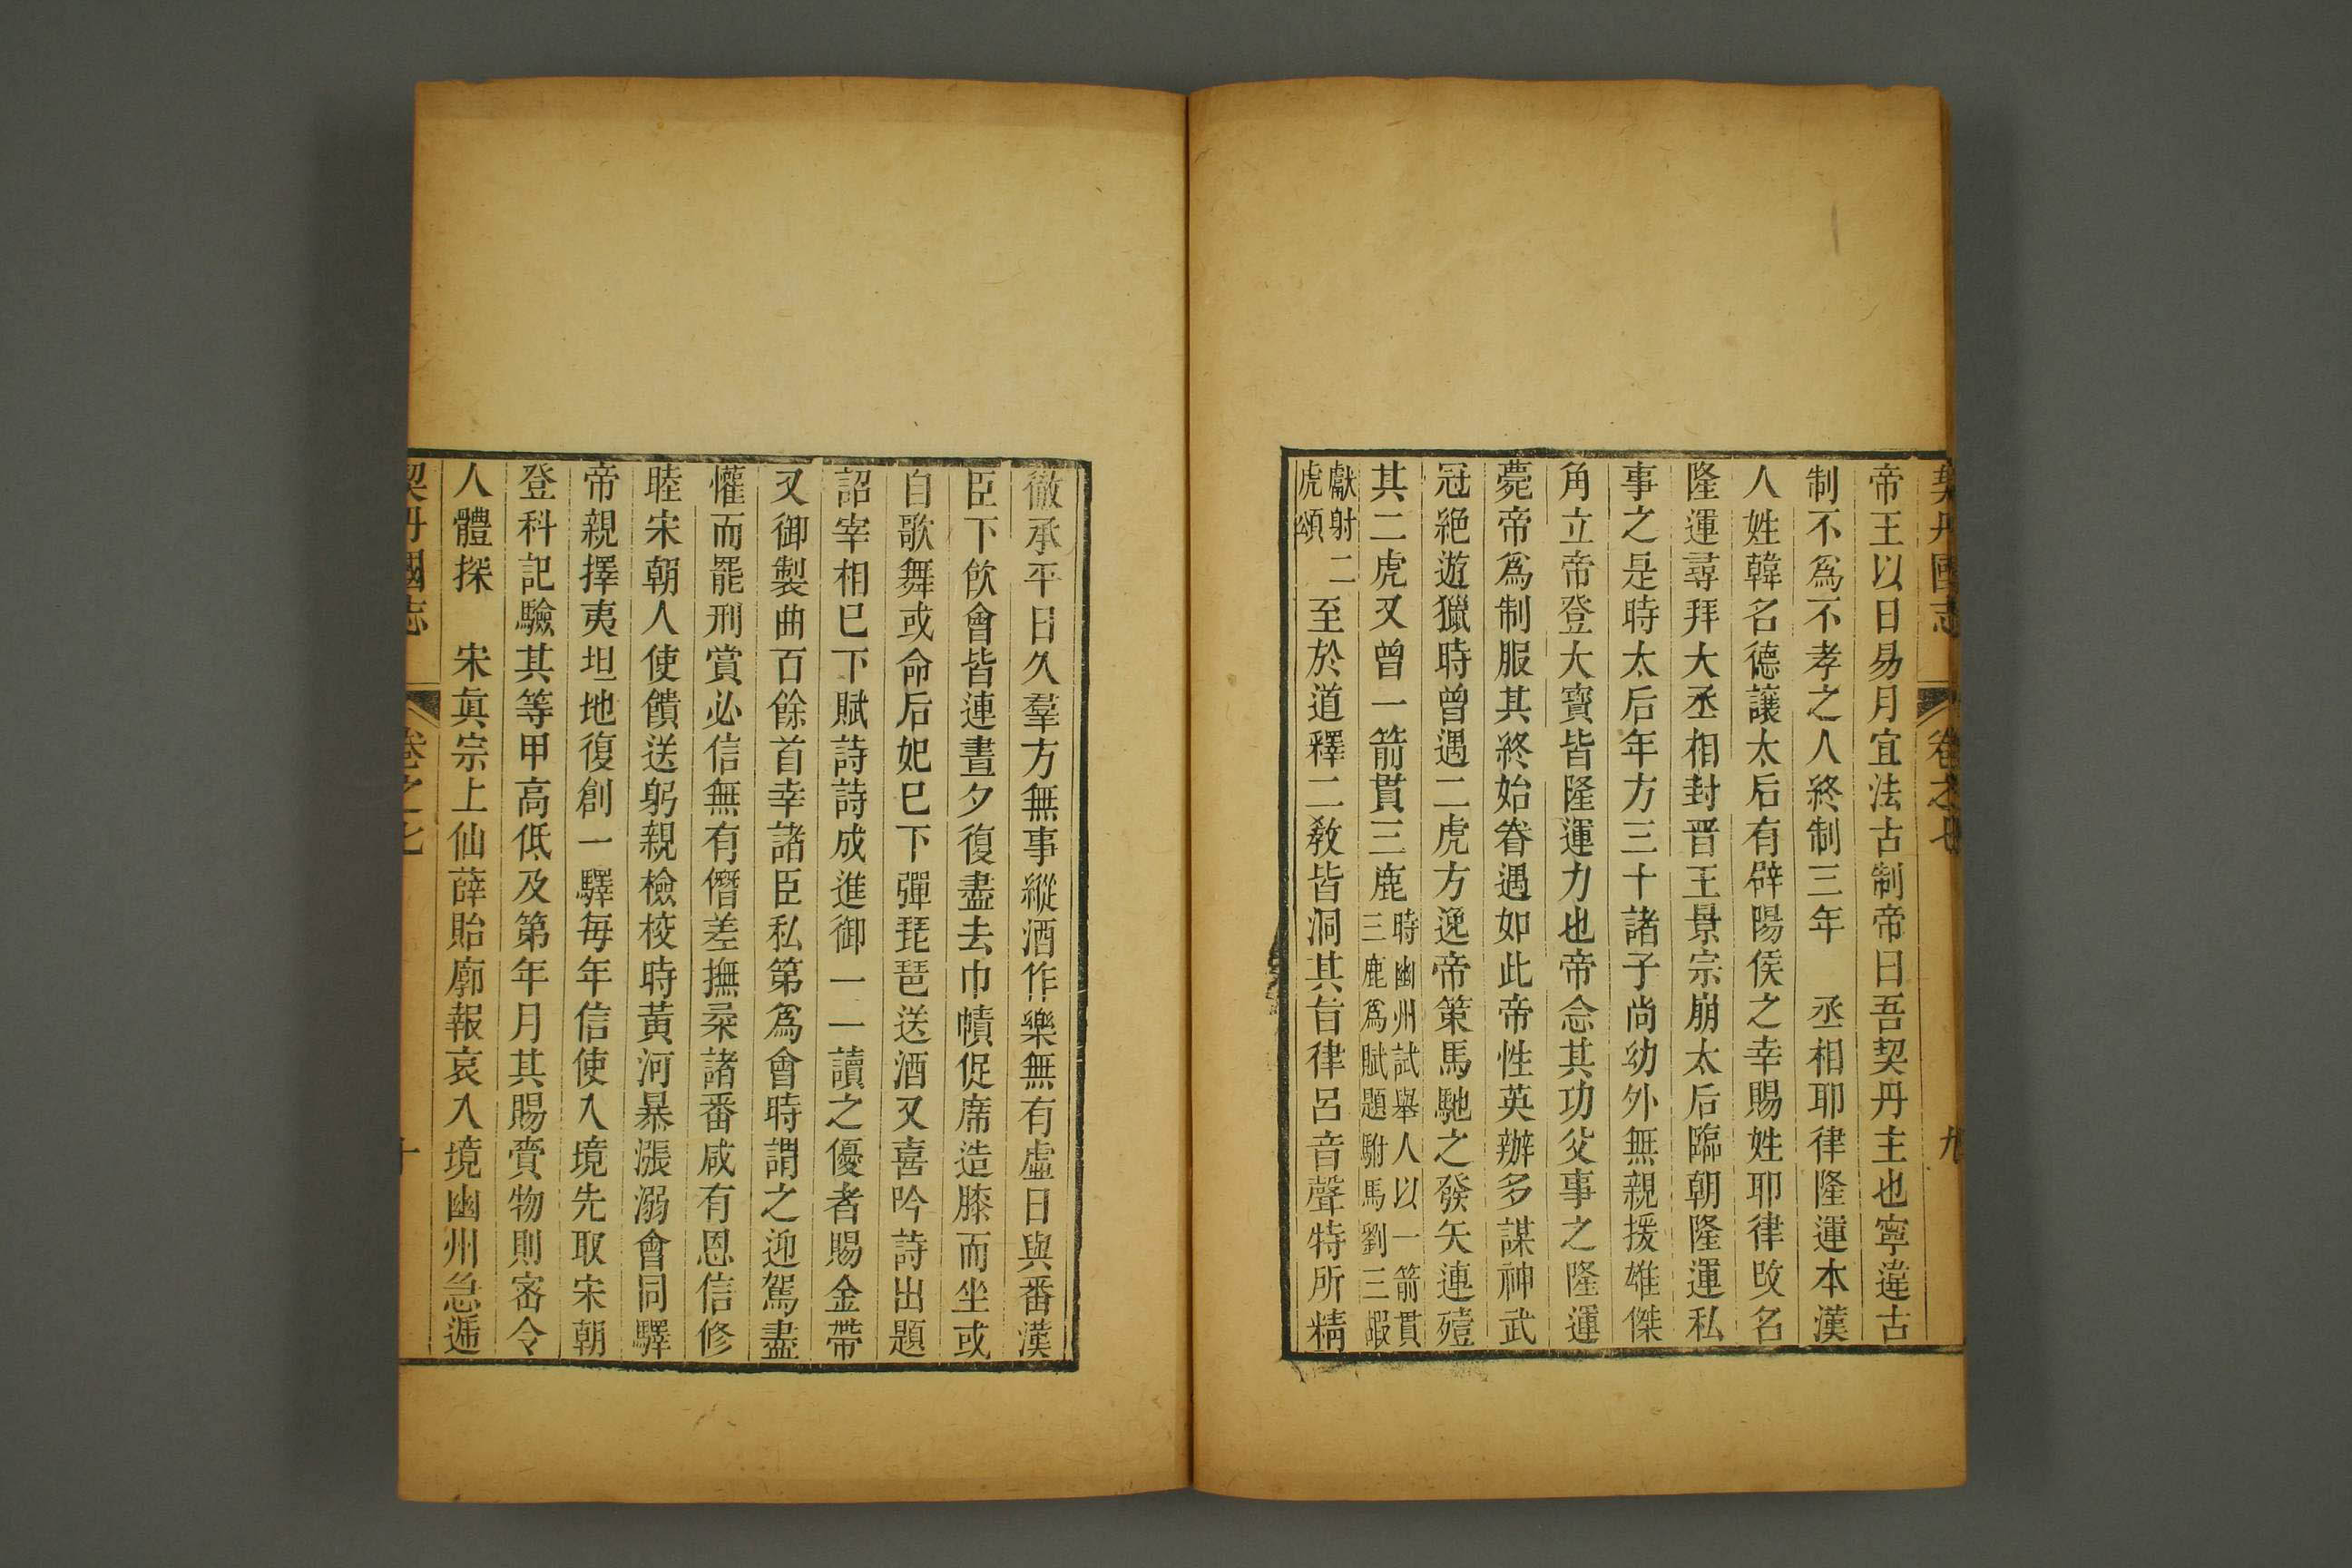 契丹國志 卷之七 九
帝王以日易月宜法古制帝曰吾契丹主也寧違古
制不爲不孝之人終制三年 丞相耶律隆運本漢
人姓韓名德讓太后有辟陽侯之幸賜姓耶律改名
隆運尋拜大丞相封晋王景宗崩太后臨朝隆運私
事之是時太后年方三十諸子尚幼外無親援雄傑
角立帝登大寶皆隆運力也帝念其功父事之隆運
薨帝爲制服其終始眷遇如此帝性英辦多謀神武
冠絶遊獵時曾遇二虎方逸帝策馬馳之發矢連殪
其二虎又曾一箭貫三鹿時幽州試舉人以一箭貫三鹿爲賦題駙馬劉三嘏
獻射二虎頌至於道釋二教皆洞其旨律呂音聲特所精
徹承平日久羣方無事縱酒作樂無有虛日與番漢
臣下飲會皆連晝夕復盡去巾幘促席造膝而坐或
自歌舞或命后妃巳下彈琵琶送酒又喜吟詩出題
詔宰相巳下賦詩詩成進御一一讀之優者賜金帶
又御製曲百餘首幸諸臣私第爲會時謂之迎駕盡
懽而罷刑賞必信無有僭差撫柔諸番咸有恩信修
睦宋朝人使饋送躬親檢校時黃河暴漲溺會同驛
帝親擇夷坦地復創一驛每年信使入境先取宋朝
登科記驗其等甲高低及第年月其賜賚物則密令
人體探 宋眞宗上仙薛貽廓報哀入境幽州急遞
契丹國志 卷之七 十